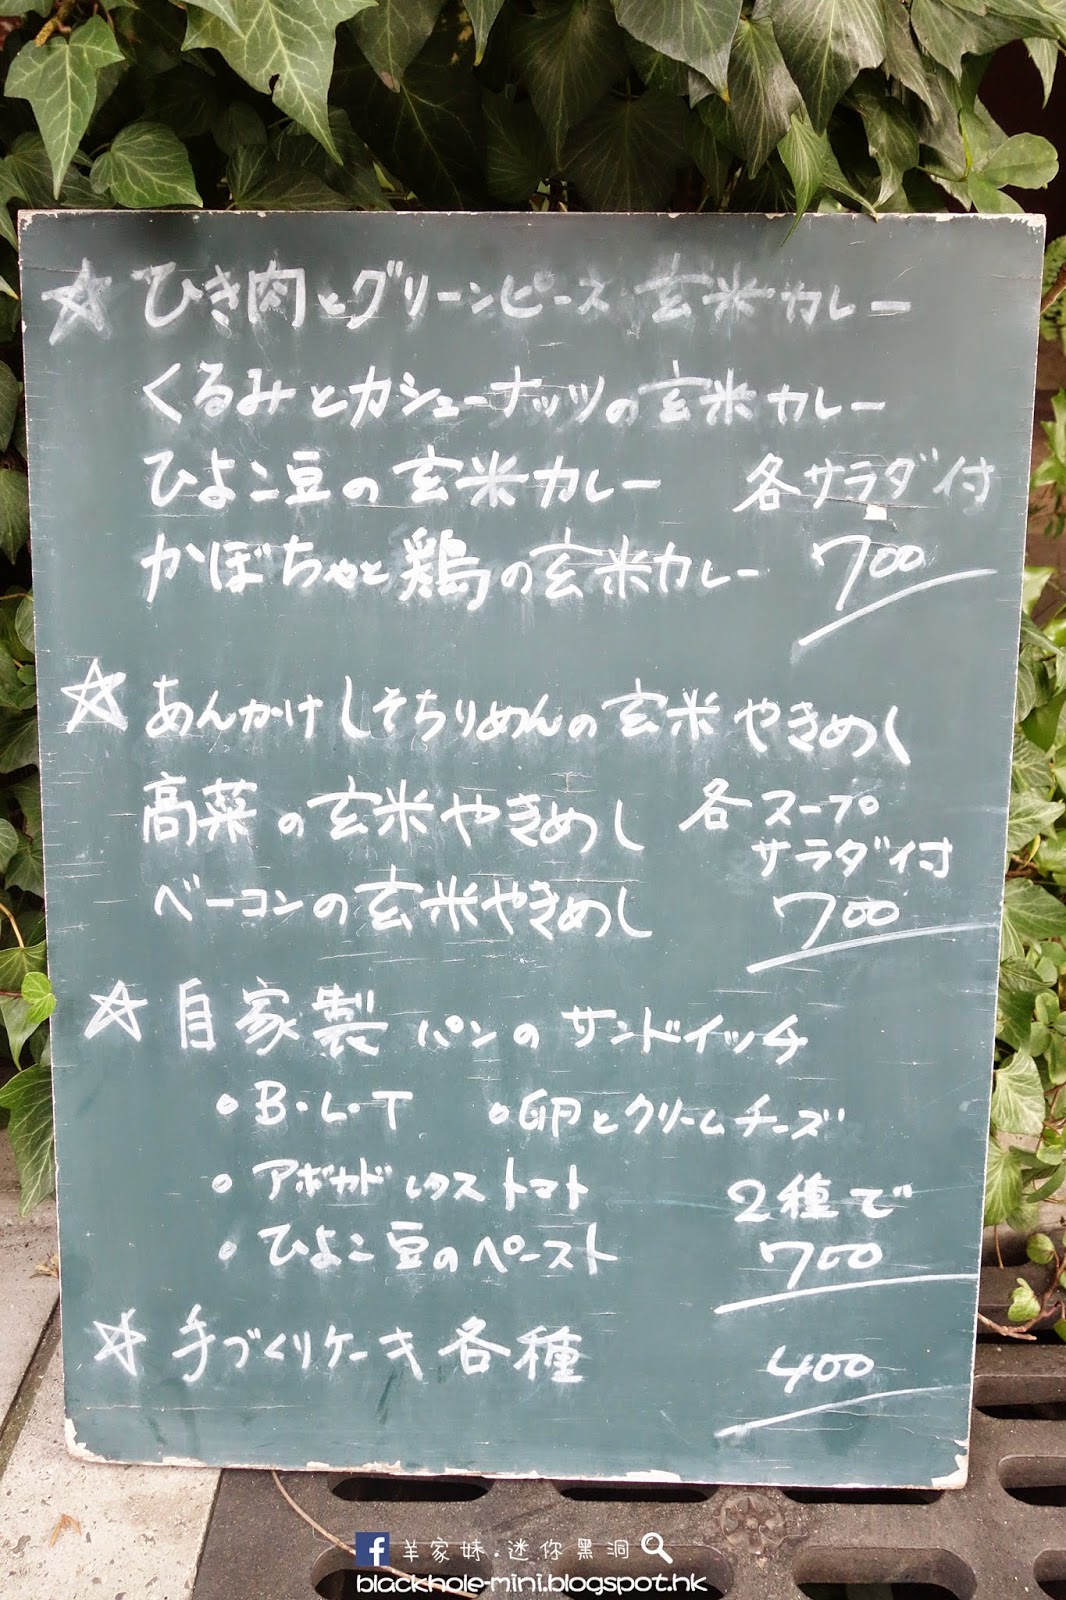 ☆ ひき肉とグリーンピース 玄米カレー
くるみとカシューナッツの玄米カレー
ひよこ豆の玄米カレー 各サラダ付
かぼちゃと鶏の玄米カレー 700
☆ あんかけしそちりめんの玄米やきめし
高菜の玄米やきめし 各スープ
サラダ付
ベーコンの玄米やきめし 700
☆ 自家製パンのサンドイッチ
・B・L・T ・卵とクリームチーズ
・アボカドレタストマト 2種で
・ひよこ豆のペースト 700
☆ 手づくりケーキ各種 400
羊家妹.迷你黑洞
blackhole-mini.blogspot.hk